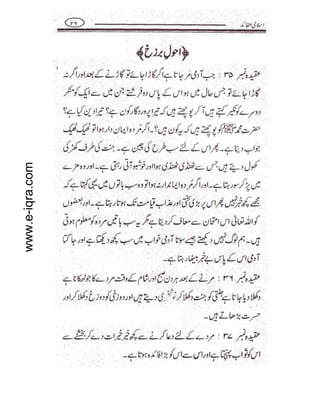 اسلامی عقائد ۲۹
﴿احوالِ برزخ﴾
عقیدہ نمبر ۳۵ : جب آدمی مر جاتا ہے اگر گاڑا جائے تو گاڑنے کے بعد اور اگر نہ
گاڑا جائے تو جس حال میں ہو اس کے پاس دو فرشتے جن میں سے ایک کو منکر
دوسرے کو نکیر کہتے ہیں آ کر پوچھتے ہیں کہ تیرا پروردگار کون ہے؟ تیرا دین کیا ہے؟
حضرت محمد ﷺ کو پوچھتے ہیں کہ یہ کون ہیں؟۔ اگر مردہ ایمان دار ہوا تو ٹھیک ٹھیک
جواب دیتا ہے۔ پھر اس کے لئے سب طرح کی چین ہے۔ جنت کی طرف کھڑکی
کھول دیتے ہیں جس سے ٹھنڈی ٹھنڈی ہوا اور خوشبو آتی رہتی ہے۔ اور وہ مزے
میں پڑ کر سو رہتا ہے۔ اور اگر مردہ ایماندار نہ ہوا تو وہ سب باتوں میں یہی کہتا ہے کہ
مجھے کچھ خبر نہیں پھر اس پر بڑی سختی اور عذاب قیامت تک ہوتا رہتا ہے۔ اور بعضوں
کو اللہ تعالیٰ اس امتحان سے معاف کر دیتا ہے مگر یہ سب باتیں مردہ کو معلوم ہوتی
ہیں۔ ہم لوگ نہیں دیکھتے جیسے سوتا آدمی خواب میں سب کچھ دیکھتا ہے اور جاگتا
آدمی اس کے پاس بے خبر بیٹھا رہتا ہے۔
عقیدہ نمبر ۳۶ : مرنے کے بعد ہر دن صبح اور شام کے وقت مردے کا جو ٹھکانا ہے
دکھلا دیا جاتا ہے جنتی کو جنت دکھلا کر خوشخبری دیتے ہیں اور دوزخی کو دوزخ دکھلا کر اور
حسرت بڑھاتے ہیں۔
عقیدہ نمبر ۳۷ : مردے کے لئے دعا کرنے سے کچھ خیر خیرات دے کر بخشنے سے
اس کو ثواب پہنچتا ہے اور اس سے اس کو بڑا فائدہ ہوتا ہے۔
www.e-iqra.com